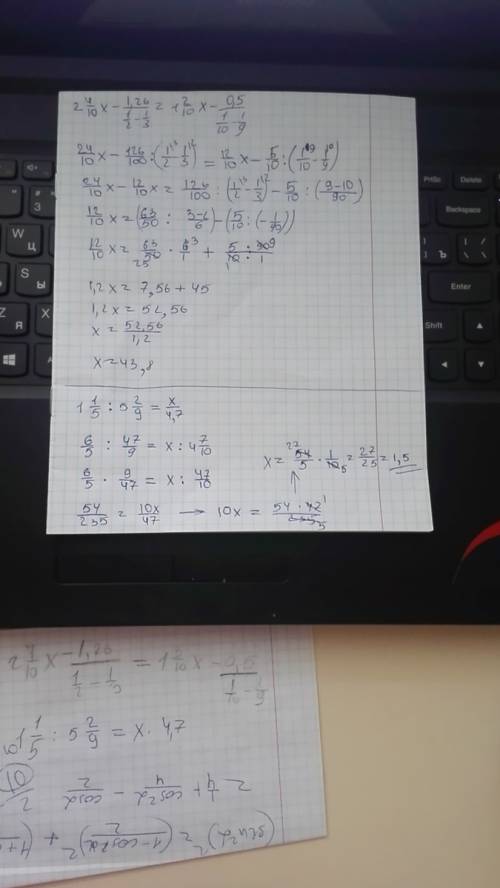 2 4/10 x − 1,26/(1/2 − 1/3) = 1 2/10 x − 0,5/(1/10 − 1/9)
24/10 x − 126/100 : (1/2 − 1/3) = 12/10 x − 5/10 : (1/10 − 1/9)
24/10 x − 12/10 x = 126/100 : (1/2 − 1/3) − 5/10 : ((9−10)/90)
12/10 x = (63/50 : (3−2)/6) − (5/10 : (−1/90))
12/10 x = 63/50 · 6/1 + (5 : 90)/(10 : 1)
1,2x = 7,56 + 45
1,2x = 52,56
x = 52,56/1,2
x = 43,8
1 1/5 : 5 2/9 = x/4,7
6/5 : 47/9 = x : 4 7/10
6/5 · 9/47 = x : 47/10
x = 54/5 · 1/10 = 27/25 = 1,5
54/235 = 10x/47 → 10x = 54 · 47/235
PrtSc
Delete
Backspace
Enter
Shift
Alt
Ctrl
W
Ц
S
Ы
Я
2 4/10 x − 1,26/(1/2 − 1/3) = 1 2/10 x − 0,5/(1/10 − 1/9)
1 1/5 : 5 2/9 = x · 4,7